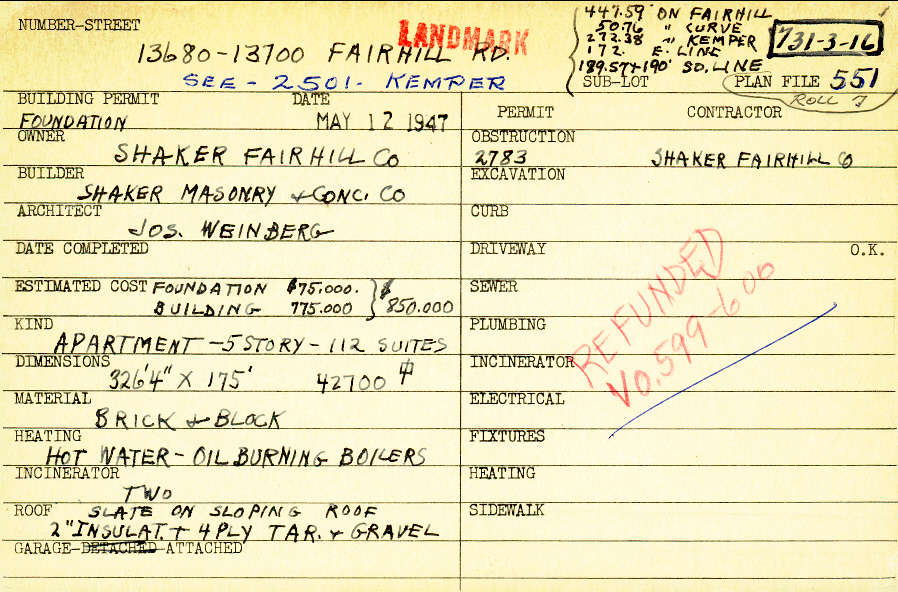 NUMBER-STREET
LANDMARK
13680-13700 FAIRHILL RD.
SEE - 2501- KEMPER
447.59' ON FAIRHILL
50.76 " CURVE
272.38 " KEMPER
172. E. LINE
189.57+190' SO. LINE
731-3-16
SUB-LOT
PLAN FILE 551
ROLL 7
BUILDING PERMIT DATE
FOUNDATION MAY 12 1947
OWNER
SHAKER FAIRHILL CO
BUILDER
SHAKER MASONRY & CONC. CO
ARCHITECT
JOS. WEINBERG
DATE COMPLETED
ESTIMATED COST FOUNDATION $75.000.
BUILDING 775.000
$850.000
KIND
APARTMENT - 5 STORY - 112 SUITES
DIMENSIONS
326'4" X 175' 42700
MATERIAL
BRICK & BLOCK
HEATING
HOT WATER - OIL BURNING BOILERS
INCINERATOR
TWO
ROOF SLATE ON SLOPING ROOF
2" INSULAT. + 4 PLY TAR. & GRAVEL
GARAGE-DETACHED-ATTACHED
PERMIT CONTRACTOR
OBSTRUCTION
2783 SHAKER FAIRHILL CO
EXCAVATION
CURB
DRIVEWAY O.K.
SEWER
PLUMBING
INCINERATOR
ELECTRICAL
FIXTURES
HEATING
SIDEWALK
REFUNDED
VO. 599-600